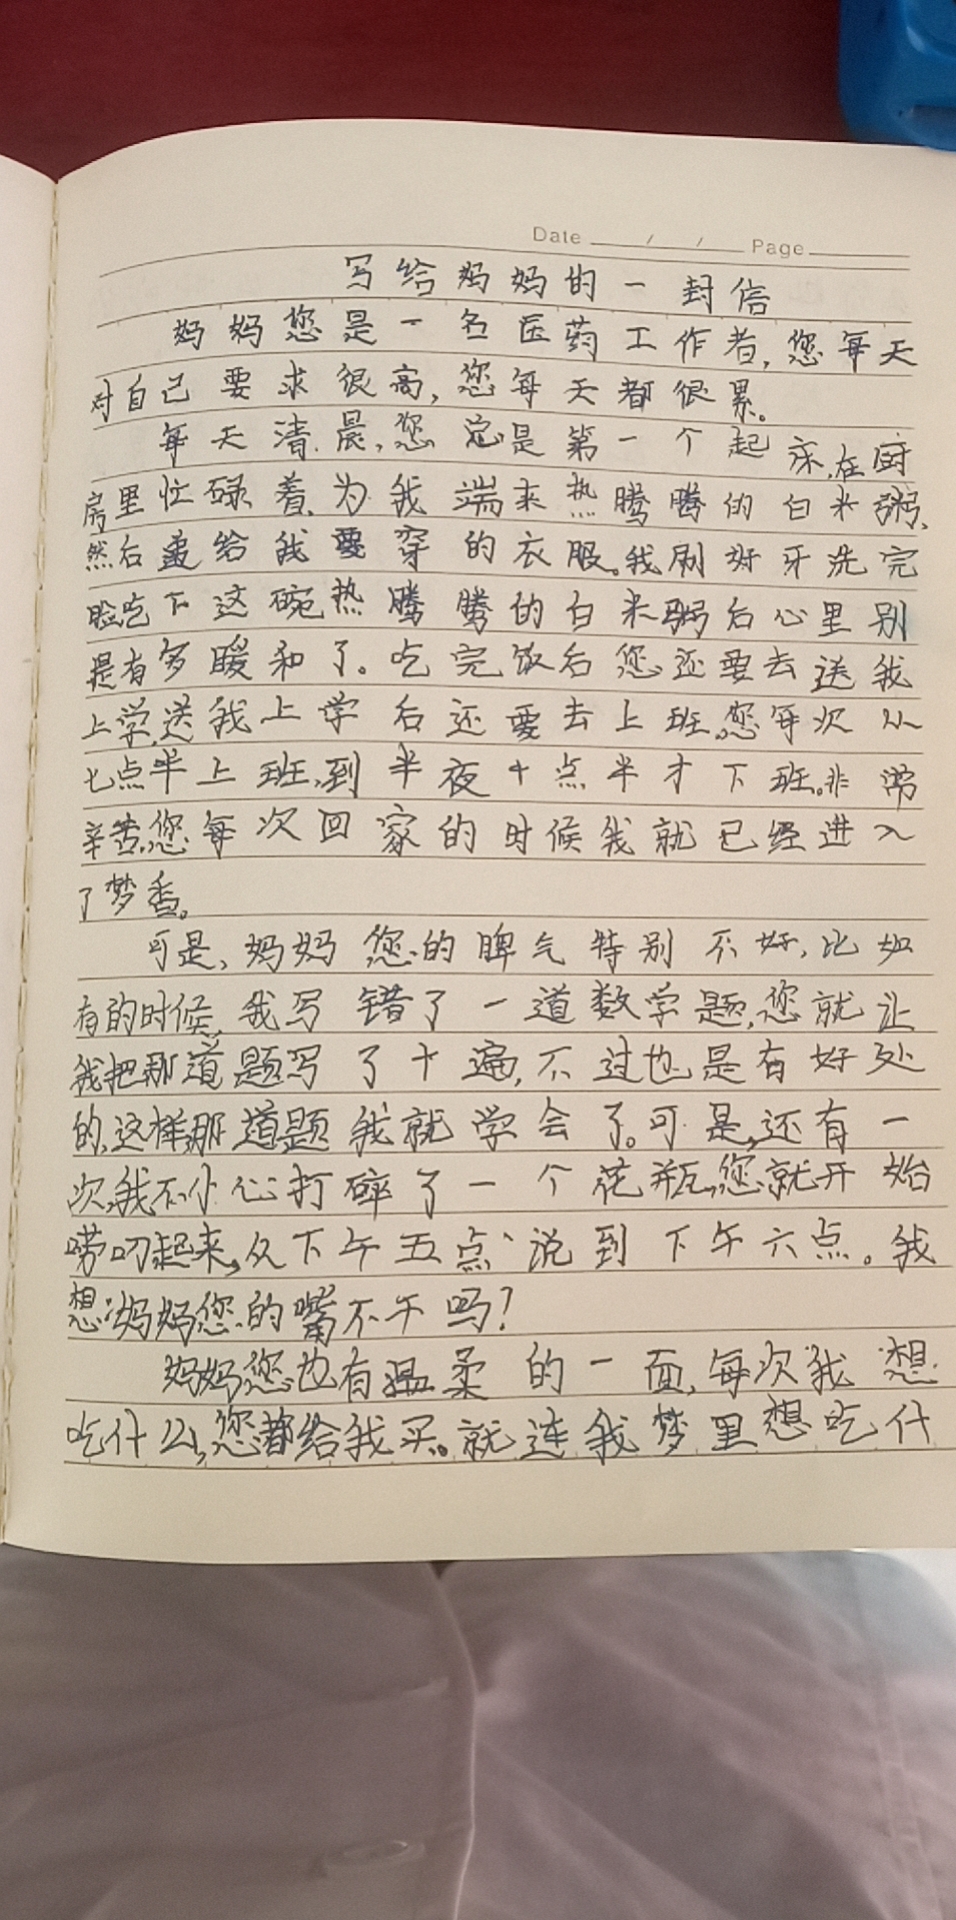 Date / / Page
写给妈妈的一封信
妈妈您是一名医药工作者,您每天
对自己要求很高,您每天都很累。
每天清晨,您定是第一个起床,在厨
房里忙碌着,为我端来热腾腾的白米粥,
然后给我要穿的衣服。我刷好牙洗完
脸吃下这碗热腾腾的白米粥后心里别
是有多暖和了。吃完饭后您还要去送我
上学,送我上学后还要去上班,您每次从
七点半上班,到半夜十点半才下班。非常
辛苦,您每次回家的时候我就已经进入
了梦香。
可是,妈妈您的脾气特别不好,比如
有的时候,我写错了一道数学题,您就让
我把那道题写了十遍,不过也是有好处
的,这样那道题我就学会了。可是,还有一
次,我不小心打碎了一个花瓶,您就开始
唠叨起来,从下午五点说到下午六点。我
想:妈妈您的嘴不午吗?
妈妈您也有温柔的一面,每次我想
吃什么,您都给我买。就连我梦里想吃什